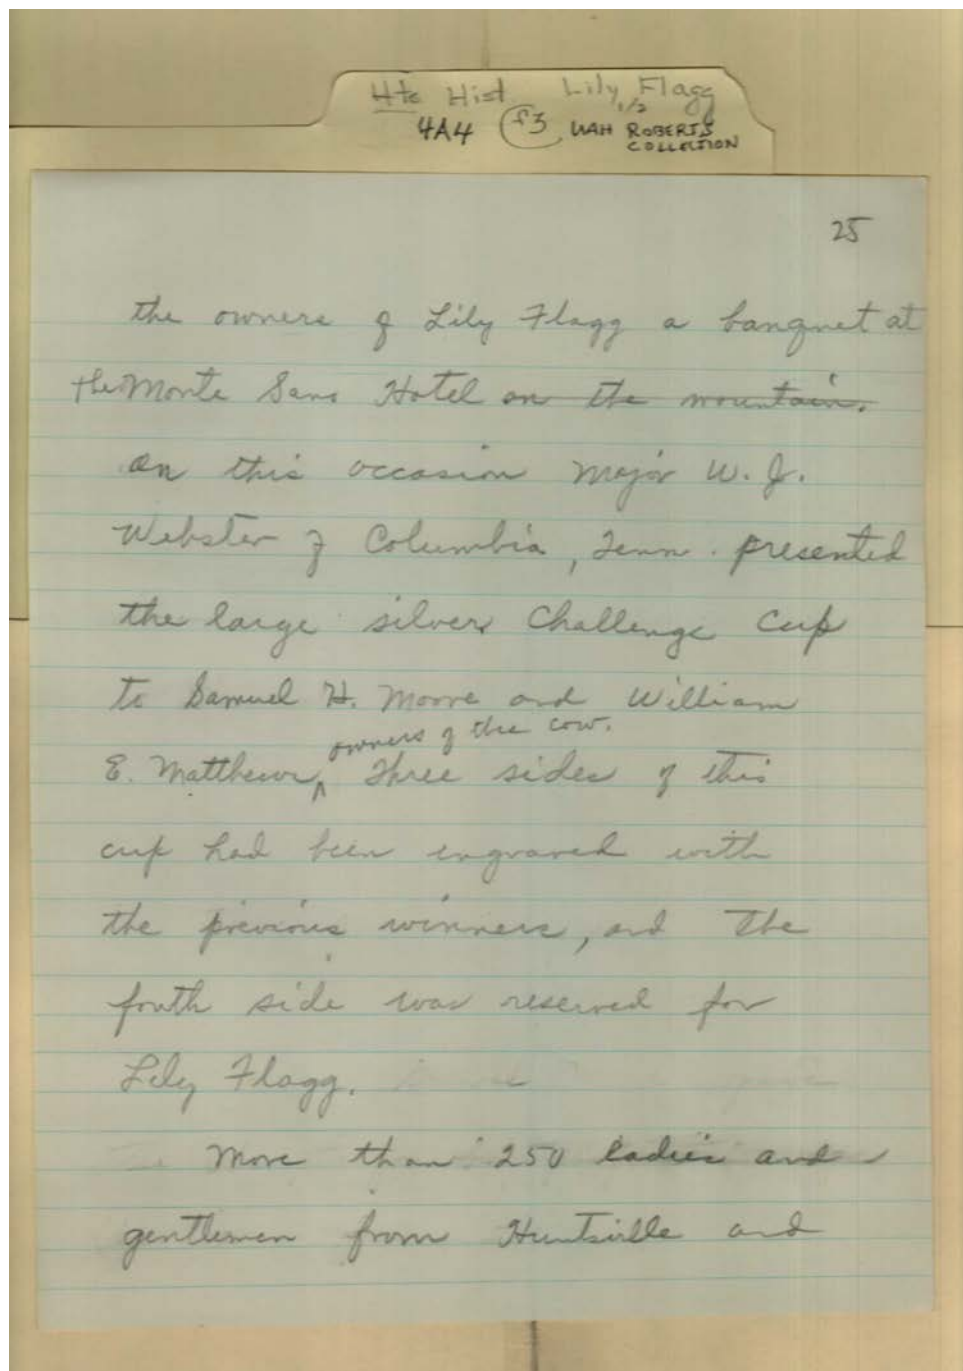 Hts Hist Lily Flagg
1/2
4A4 f3 UAH ROBERTS
COLLECTION
25
the owners of Lily Flagg a banquet at
the Monte Sano Hotel on the mountain.
On this occasion Major W. J.
Webster of Columbia, Tenn. presented
the large silver Challenge Cup
to Samuel H. Moore and William
owners of the cow.
E. Matthews, Three sides of this
cup had been engraved with
the previous winners, and the
fouth side was reserved for
Lily Flagg.
More than 250 ladies and
gentlemen from Huntsville and